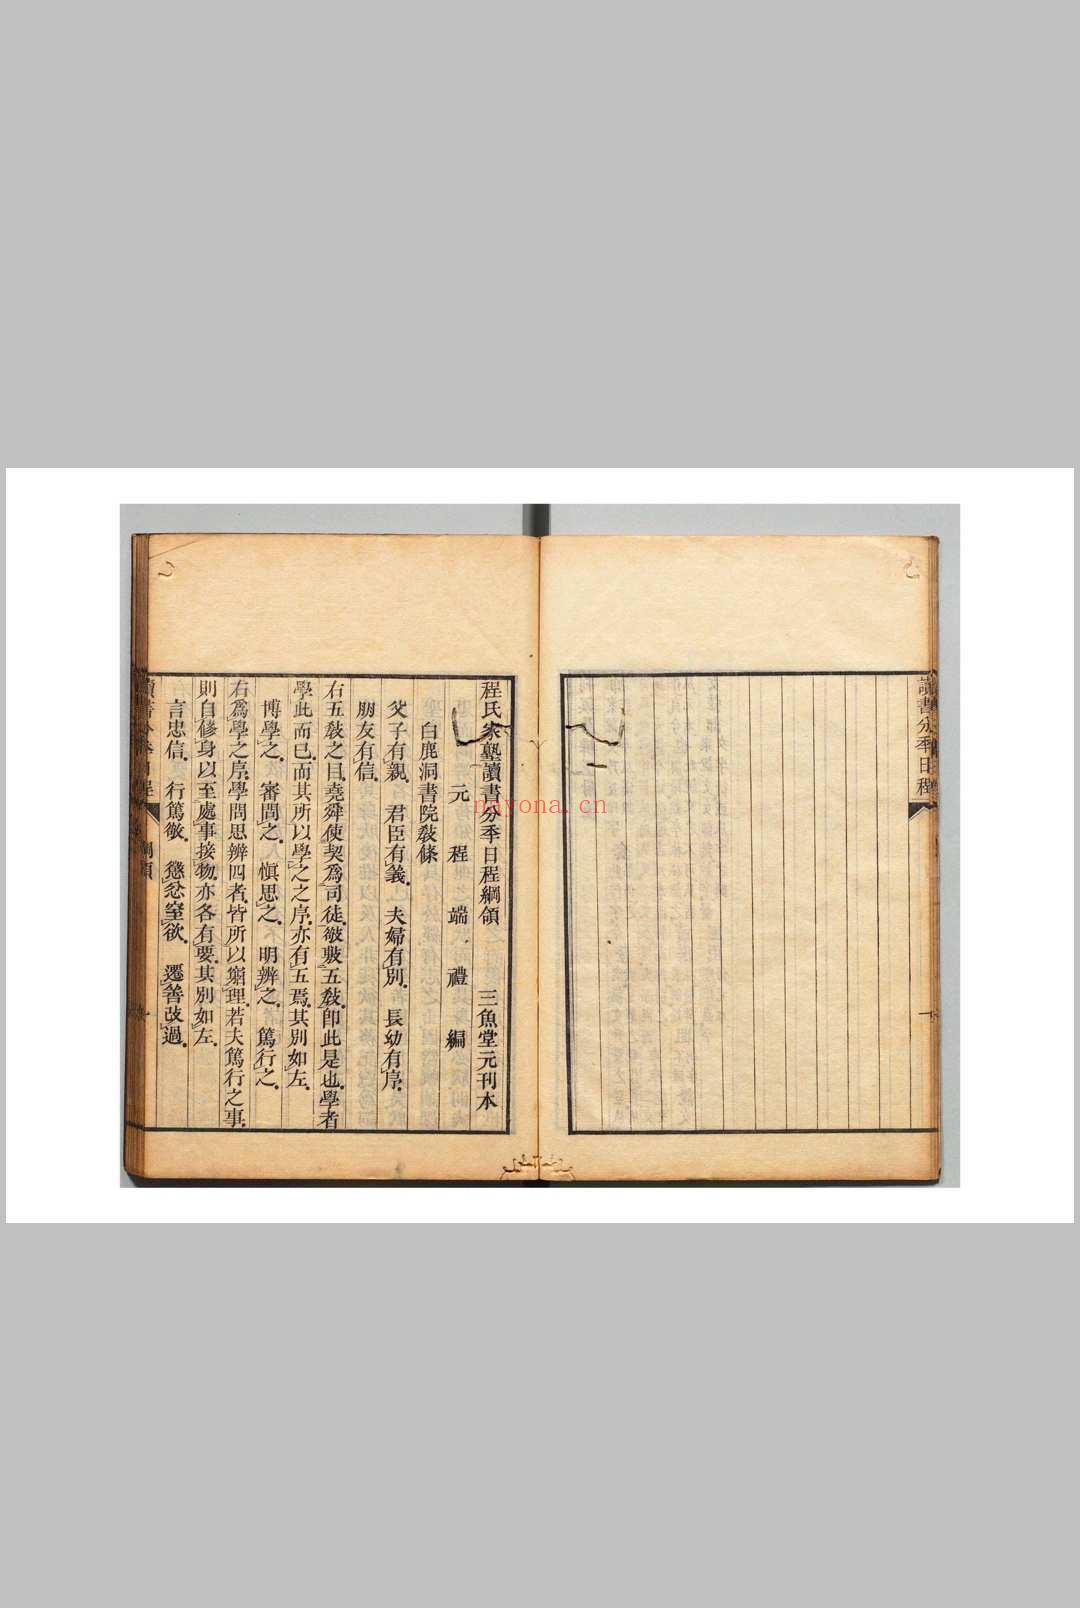 讀書分季日程
一
程氏家塾讀書分季日程綱領 三魚堂元刊本
元 程 端 禮 編
白鹿洞書院教條
父子有親 君臣有義 夫婦有別 長幼有序
朋友有信
右五教之目堯舜使契為司徒敬敷五教即此是也學者
學此而已而其所以學之之序亦有五焉其別如左
博學之 審問之 慎思之 明辨之 篤行之
右為學之序學問思辨四者皆所以窮理若夫篤行之事
則自修身以至處事接物亦各有要其別如左
言忠信 行篤敬 懲忿窒欲 遷善改過
讀書分季日程 綱領 一
nnyona.cn